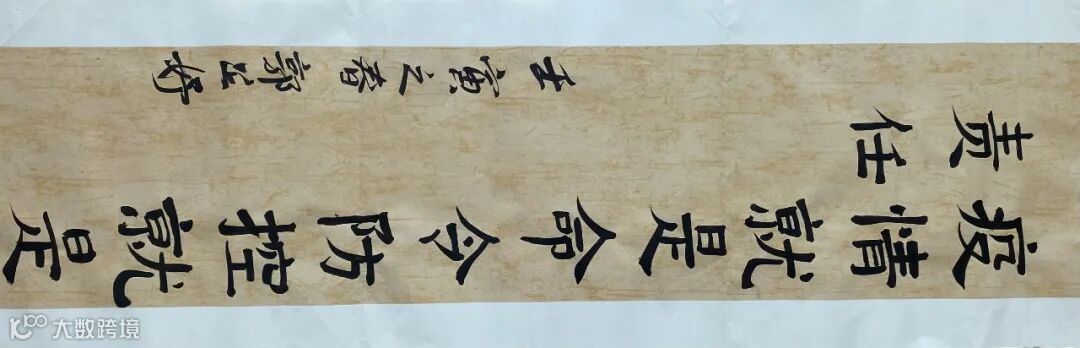 疫情就是命令防控就是
责任
壬寅之春郭
大数跨境